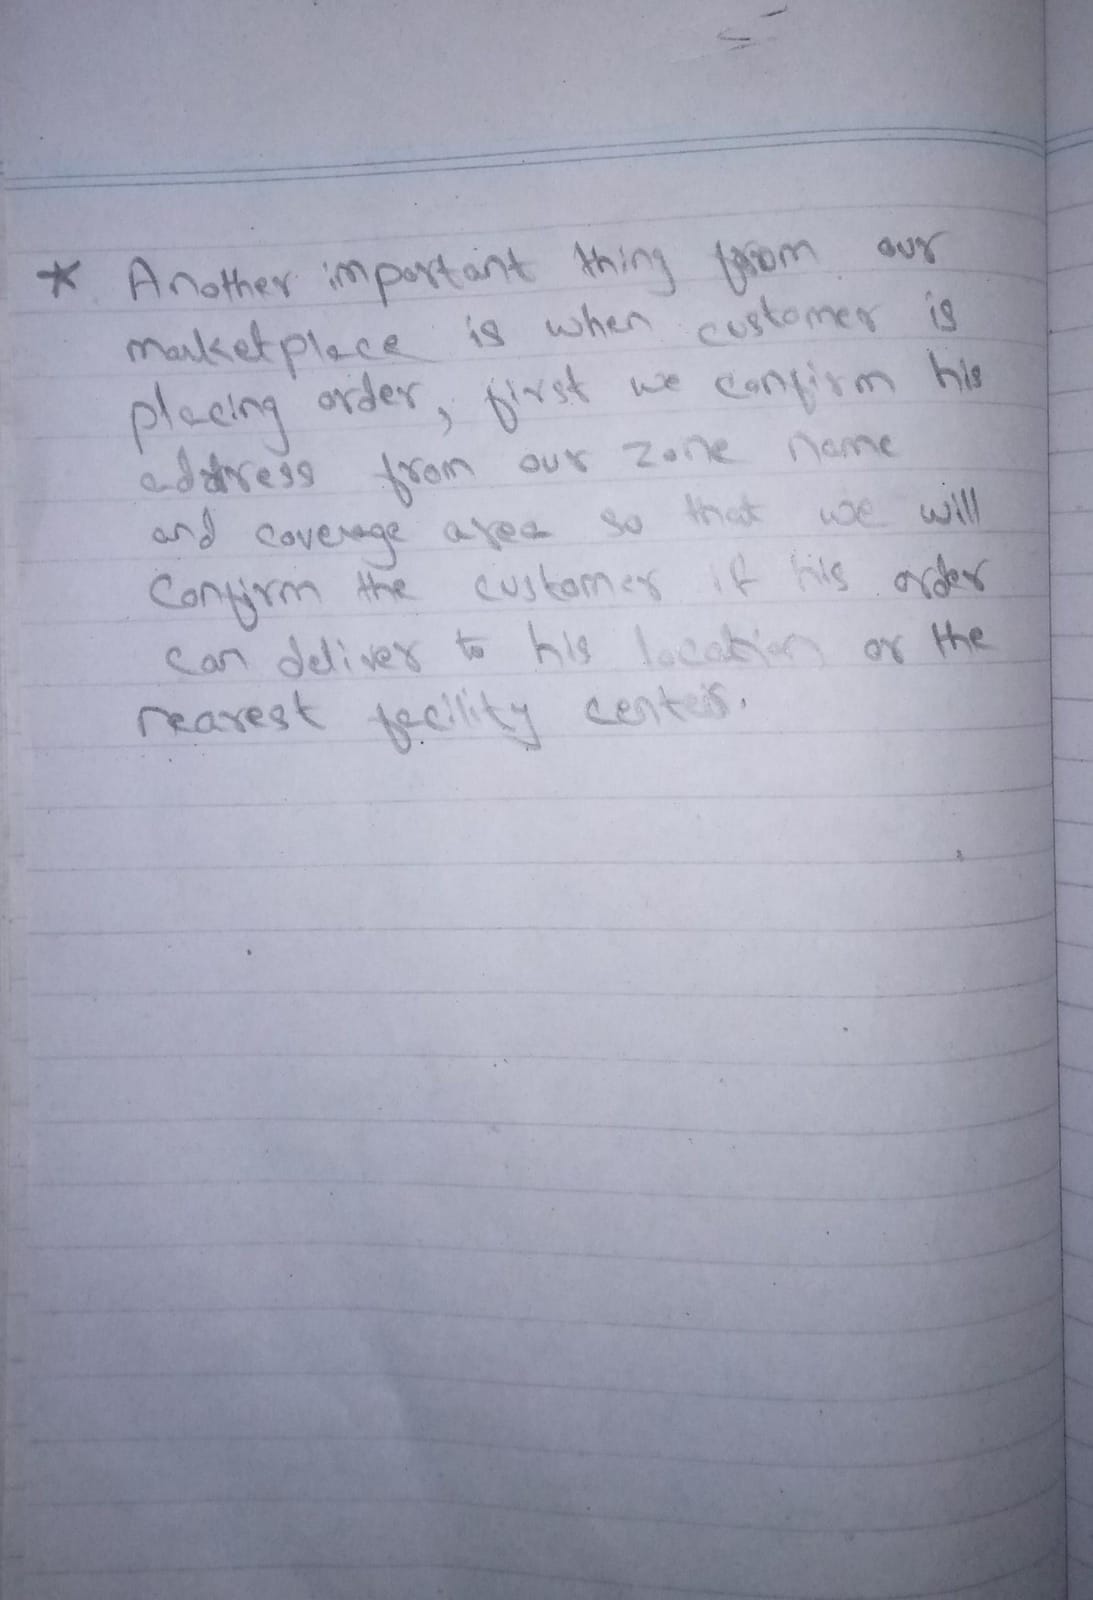 * Another important thing from our
marketplace is when customer is
placing order, first we confirm his
address from our zone name
and coverage area so that we will
confirm the customer if his order
can deliver to his location or the
nearest facility centers.